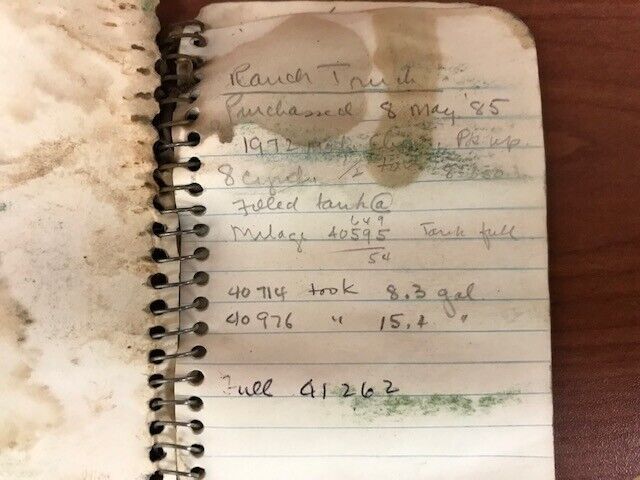 Ranch Truck
Purchassed 8 May '85
1972 Pickup
8 1/2 ton
Filled tank @
649
Milage 40595 Tank full
54
40714 took 8.3 gal
40976 " 15.4 "
Full 41262